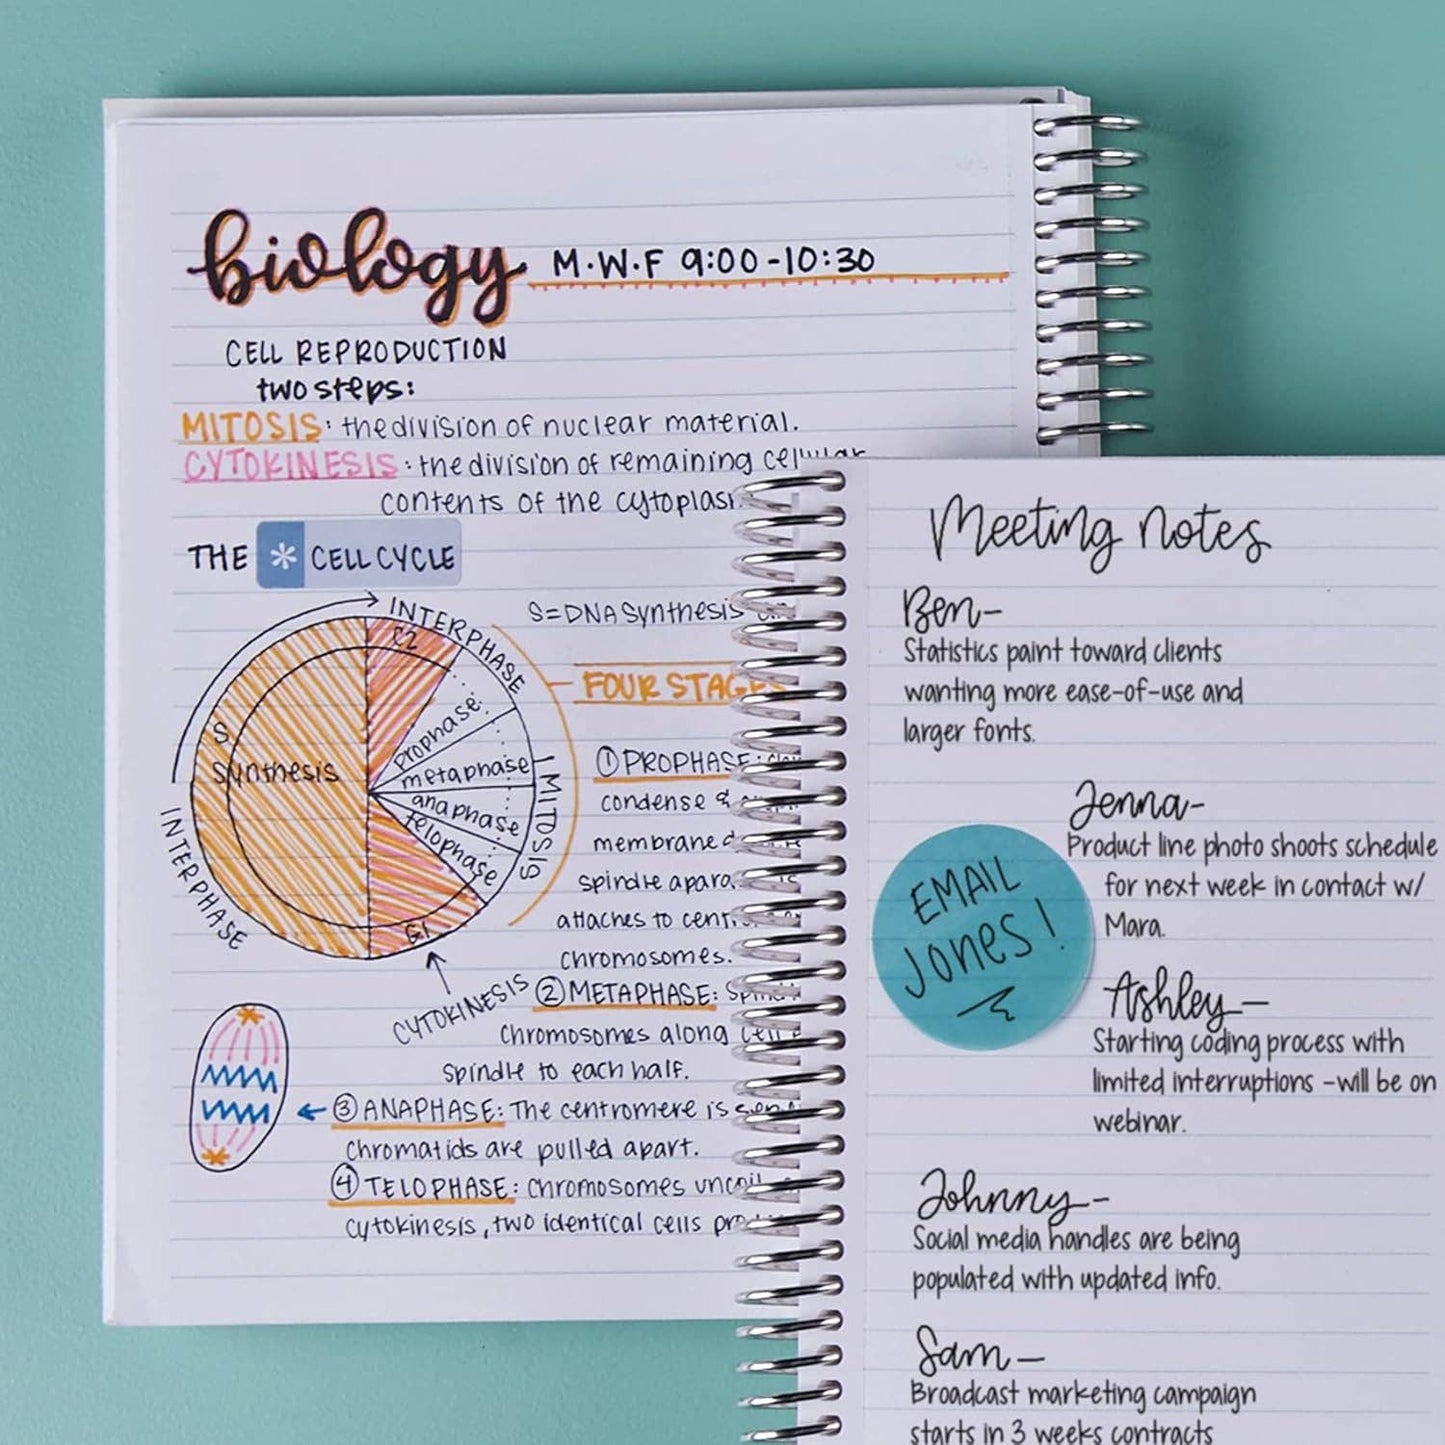 biology M·W·F 9:00-10:30
CELL REPRODUCTION
two steps:
MITOSIS: the division of nuclear material.
CYTOKINESIS: the division of remaining cellular
contents of the
THE * CELL CYCLE
INTERPHASE
S=DNA Synthesis
G2
FOUR STAGES
S
Synthesis
prophase
metaphase
anaphase
telophase
MITOSIS
INTERPHASE
G1
CYTOKINESIS
① PROPHASE:
condense &
membrane
spindle
attaches to
chromosomes.
② METAPHASE:
chromosomes along
spindle to each half.
③ ANAPHASE: The centromere is
chromatids are pulled apart.
④ TELOPHASE: chromosomes
cytokinesis, two identical cells
Meeting notes
Ben-
Statistics paint toward clients
wanting more ease-of-use and
larger fonts.
Jenna-
Product line photo shoots schedule
for next week in contact w/
Mara.
EMAIL
JONES!
Ashley-
Starting coding process with
limited interruptions -will be on
webinar.
Johnny-
Social media handles are being
populated with updated info.
Sam-
Broadcast marketing campaign
starts in 3 weeks contracts